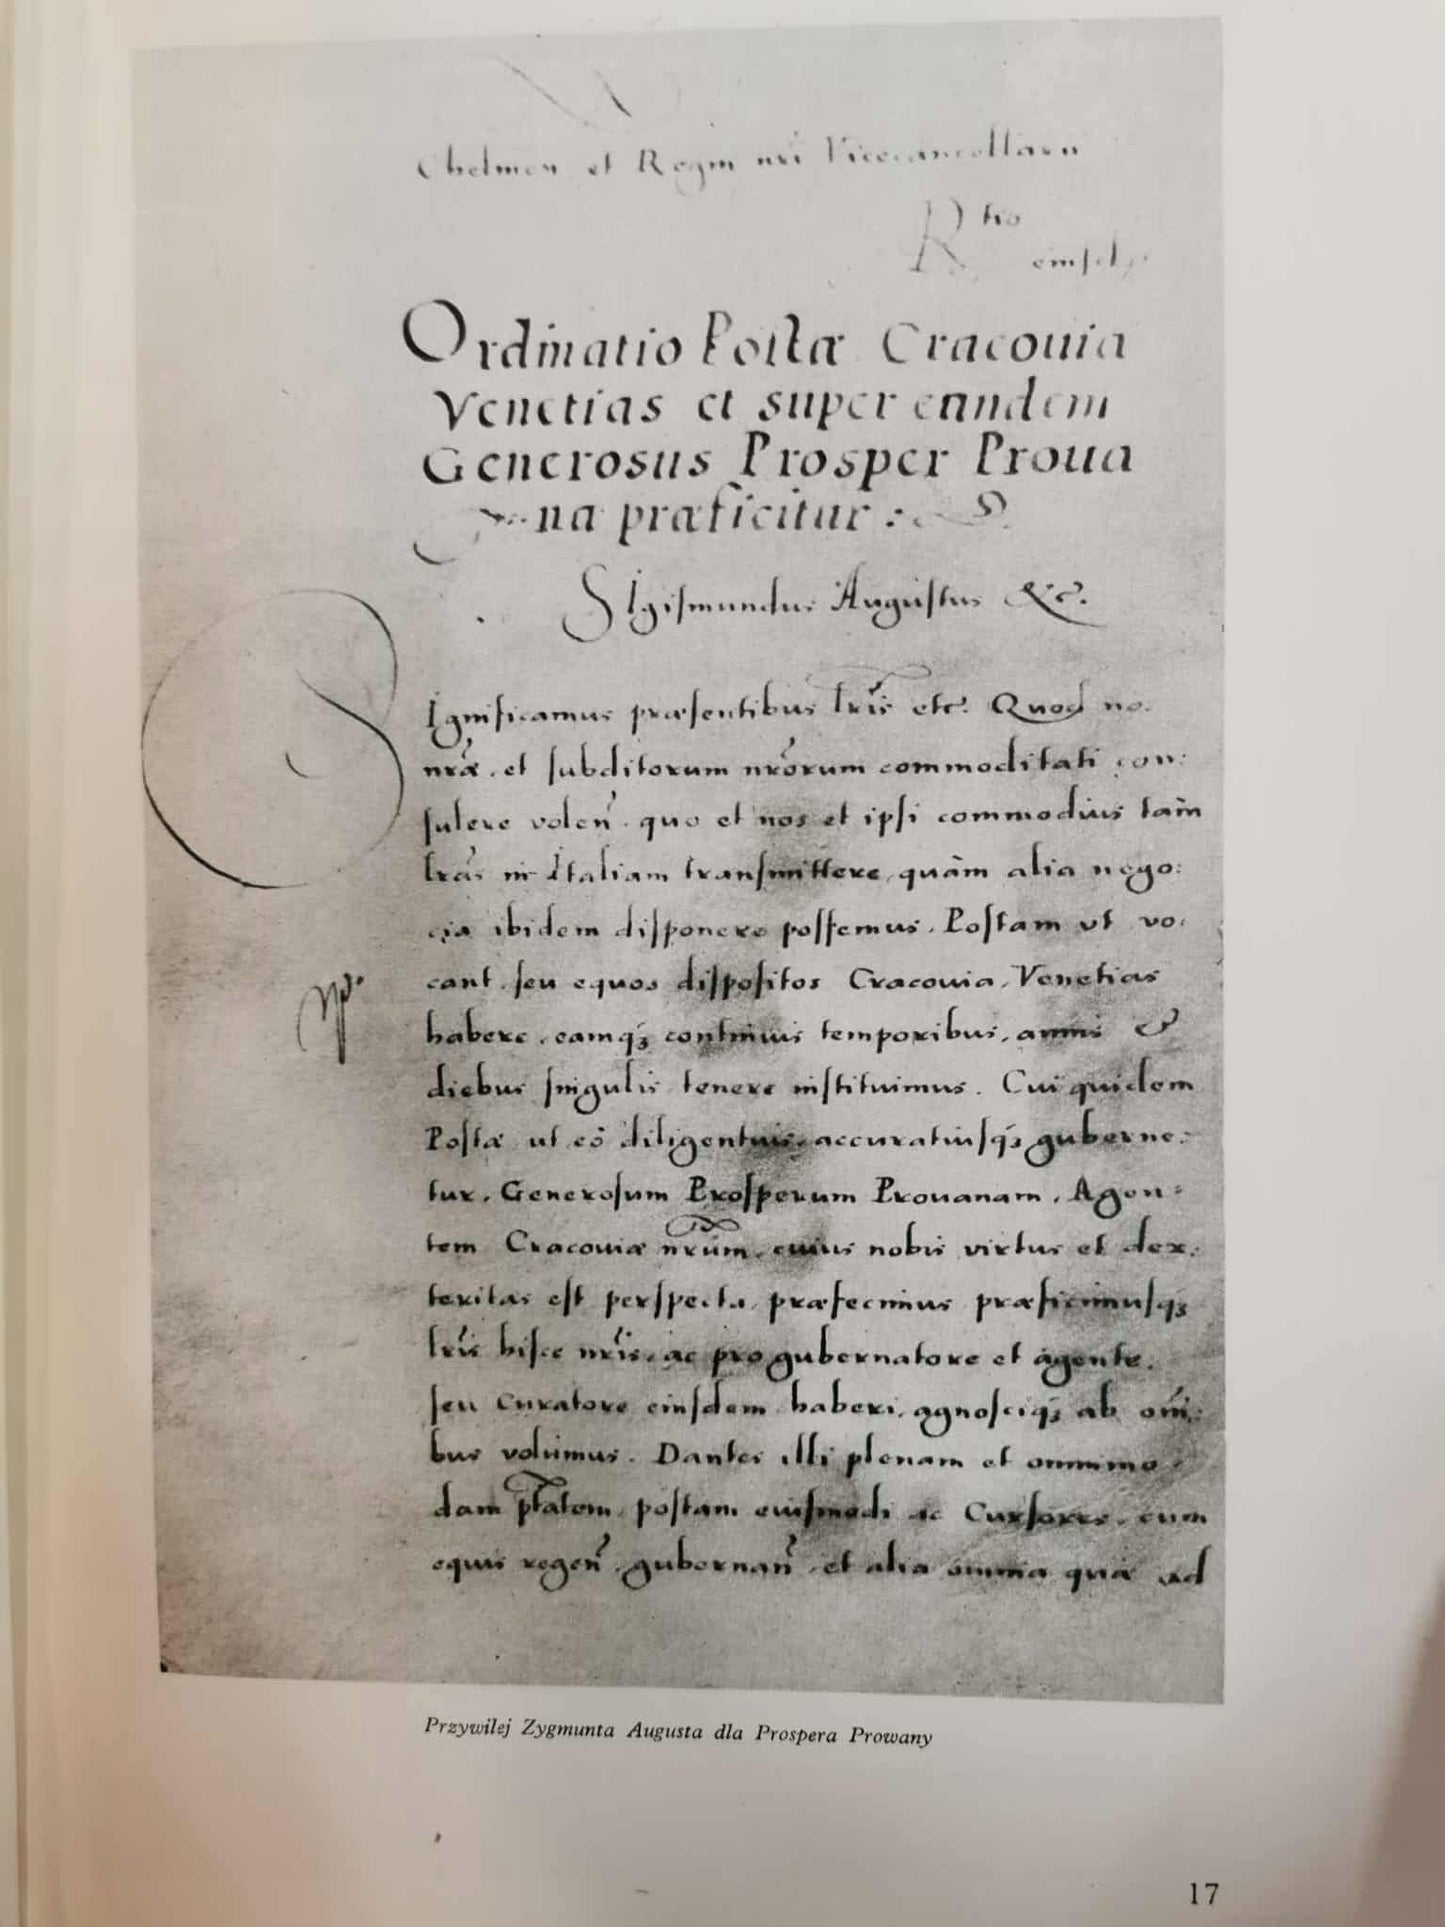 Chelmen et Regni nri Vicecancellarii
Rtio
eiusd
Ordinatio Postæ Cracouia
Venetias et super eandem
Generosus Prosper Proua
na præficitur :
SIgismundus Augustus &c.
SIgnificamus præsentibus lris etc. Quod no:
nræ. et subditorum nrorum commoditati con:
sulere volen. quo et nos et ipsi commodius tàm
lras in Italiam transmittere, quàm alia nego:
cia ibidem disponere possemus. Postam ut vo:
cant seu equos dispositos Cracouia, Venetias
habere, eamq; continuis temporibus, annis &
diebus singulis tenere instituimus. Cui quidem
Postæ ut eò diligentius, accuratiusq; guberne:
tur, Generosum Prosperum Prouanam, Agen:
tem Cracouiæ nrum, cuius nobis virtus et dex:
teritas est perspecta, præfecimus præficimusq;
lris hisce nris, ac pro gubernatore et agente,
seu curatore eiusdem haberi, agnosciq; ab omi:
bus volumus. Dantes illi plenam et omnimo
dam ptatem, postam eiusmodi ac Cursores, cum
equis regen, gubernan, et alia omnia quæ ad
Przywilej Zygmunta Augusta dla Prospera Prowany
17